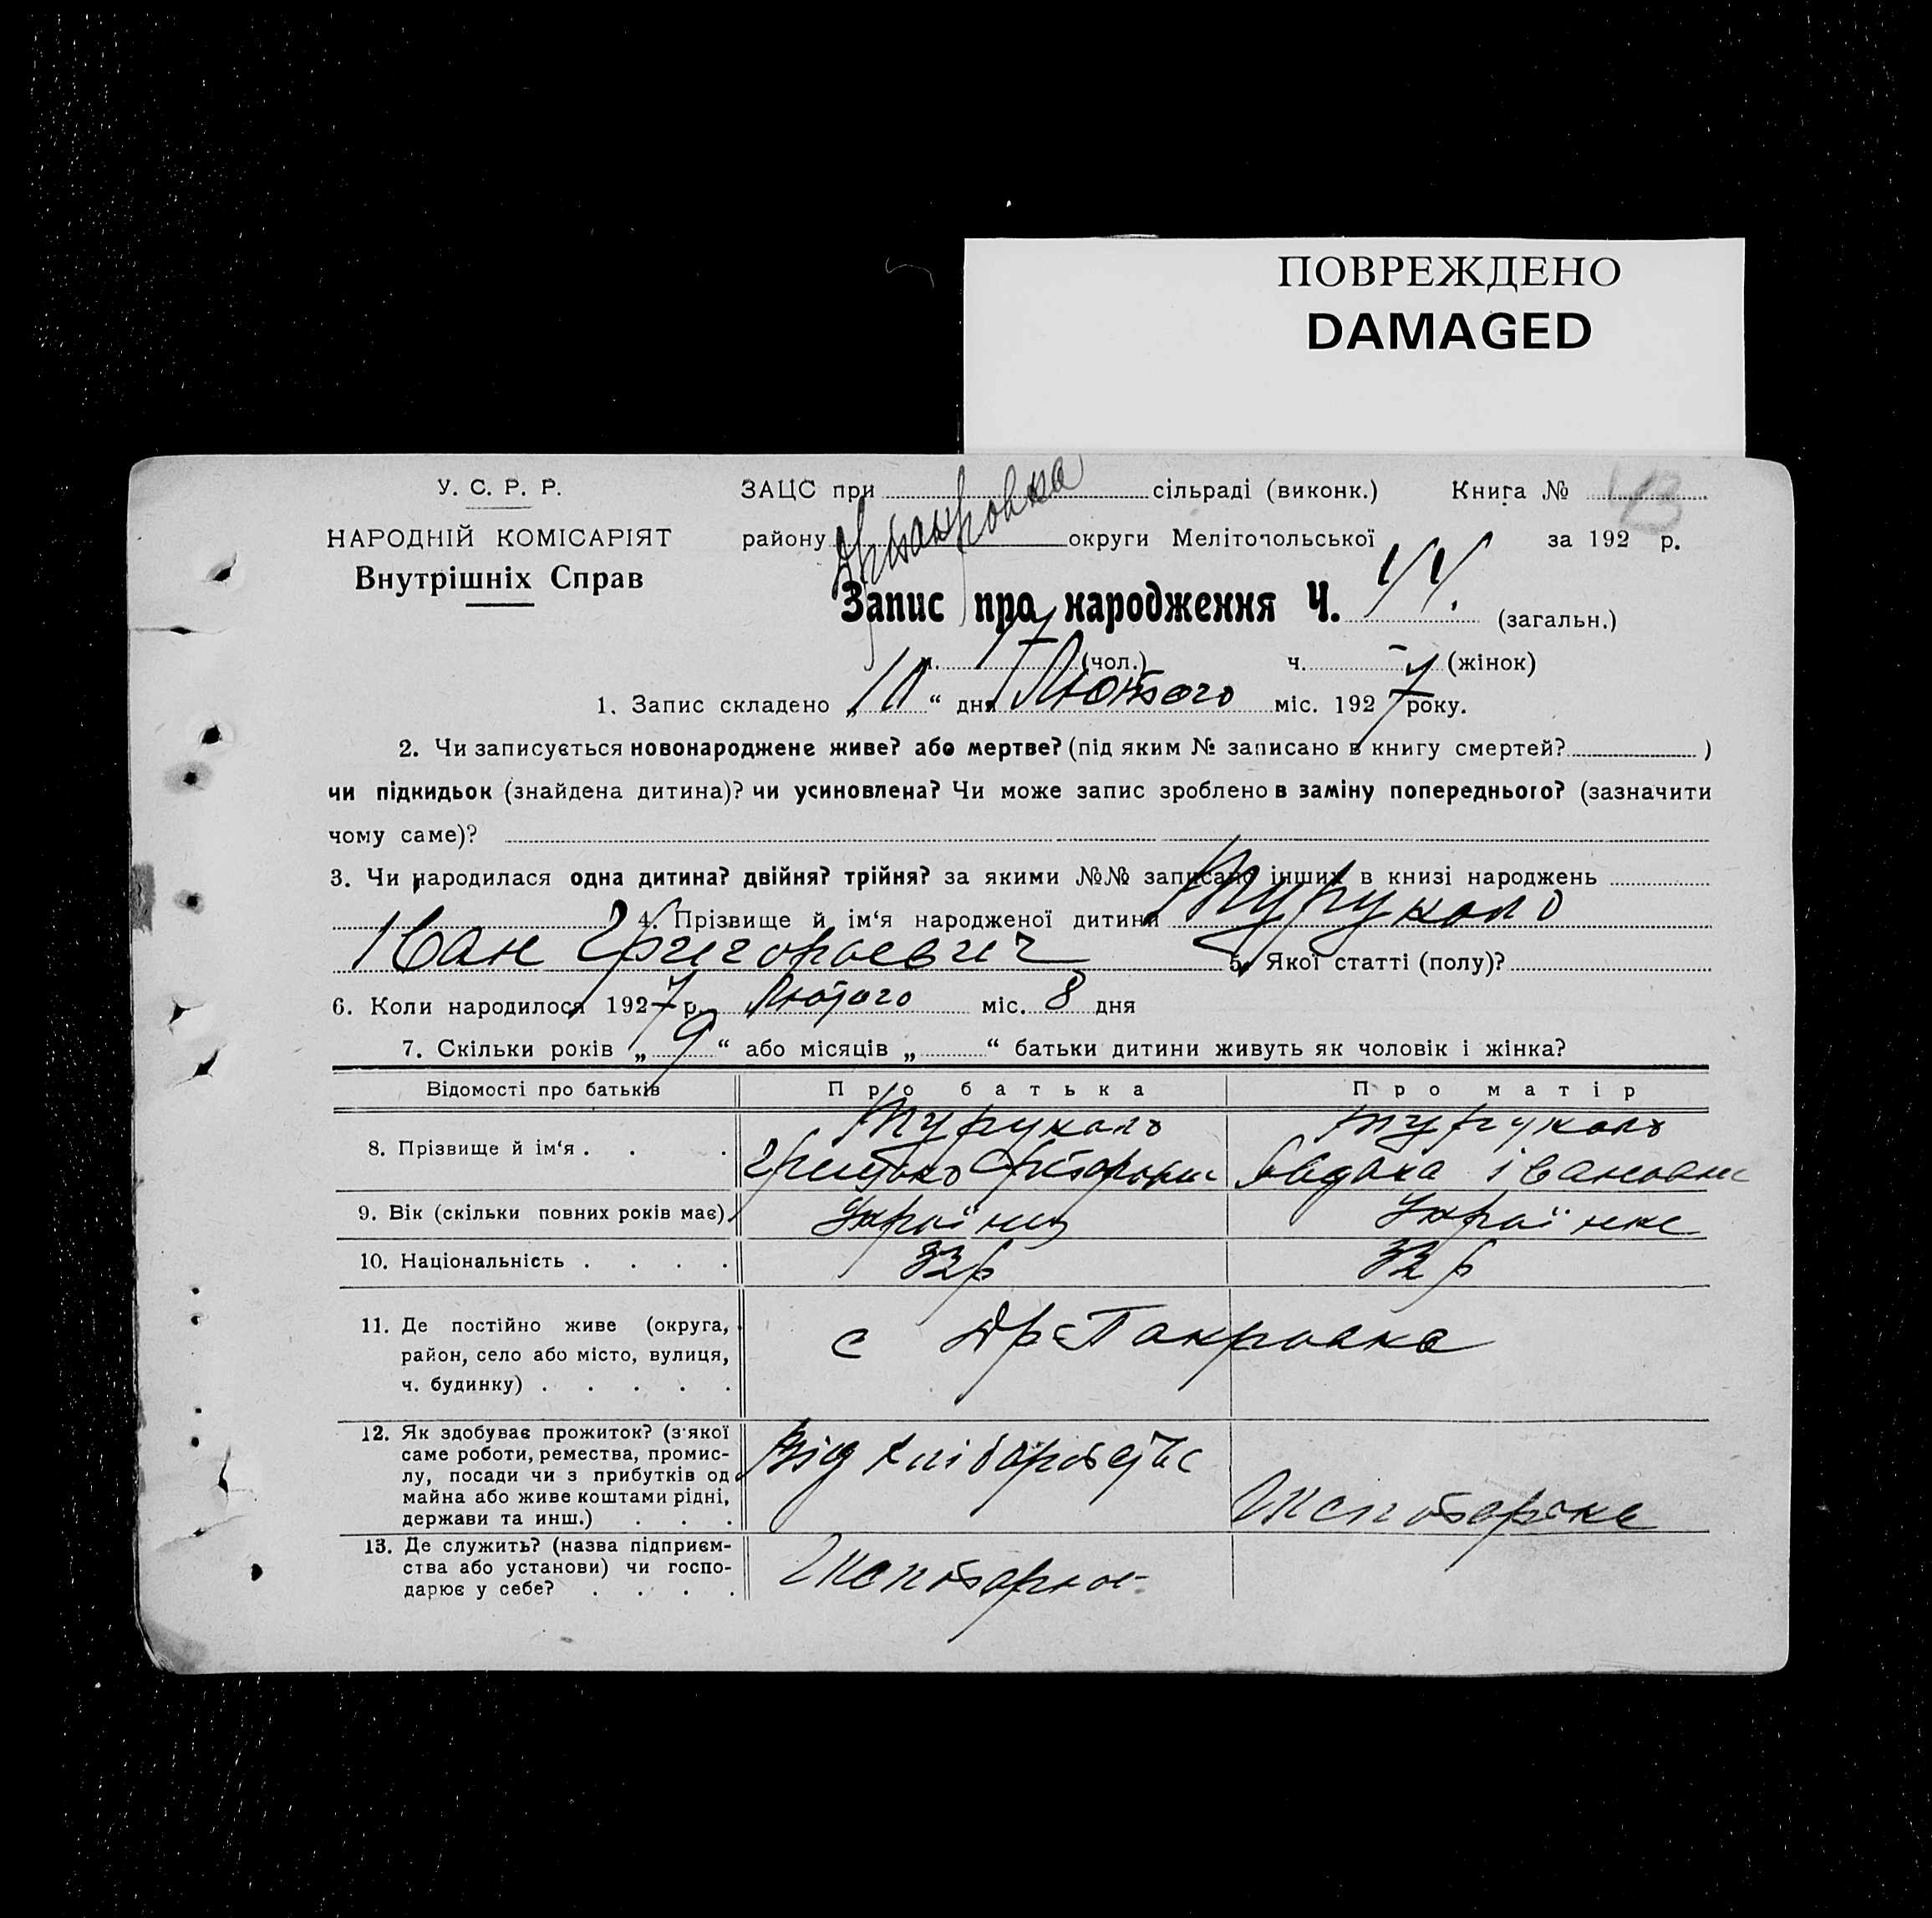 ПОВРЕЖДЕНО
DAMAGED
У. С. Р. Р.
НАРОДНІЙ КОМІСАРІЯТ
Внутрішніх Справ
ЗАЦС при сільраді (виконк.) Книга № 43
району округи Мелітопольської за 192 р.
Запис про народження Ч. 11. (загальн.)
ч. 7 (чол.) ч. (жінок)
1. Запис складено „10“ дня Лютого міс. 1927 року.
2. Чи записується новонароджене живе? або мертве? (під яким № записано в книгу смертей? )
чи підкидьок (знайдена дитина)? чи усиновлена? Чи може запис зроблено в заміну попереднього? (зазначити
чому саме)?
3. Чи народилася одна дитина? двійня? трійня? за якими №№ записано інших в книзі народжень
4. Прізвище й ім‘я народженої дитини Турукало
Іван Григорьевич 5. Якої статті (полу)?
6. Коли народилося 1927 р. Лютого міс. 8 дня
7. Скільки років „9“ або місяців „ “ батьки дитини живуть як чоловік і жінка?
Відомості про батьків Про батька Про матір
8. Прізвище й ім‘я . . . Турукало Турукало
Івановна
9. Вік (скільки повних років має) Українец Українка
10. Національність . . . . 32 р 32 р
11. Де постійно живе (округа,
район, село або місто, вулиця,
ч. будинку) . . . . .
с Др-Покровка
12. Як здобуває прожиток? (з‘якої
саме роботи, ремества, промис-
лу, посади чи з прибутків од
майна або живе коштами рідні,
держави та инш.) . . .
Від хліборобства
13. Де служить? (назва підприєм-
ства або установи) чи госпо-
дарює у себе? . . . .